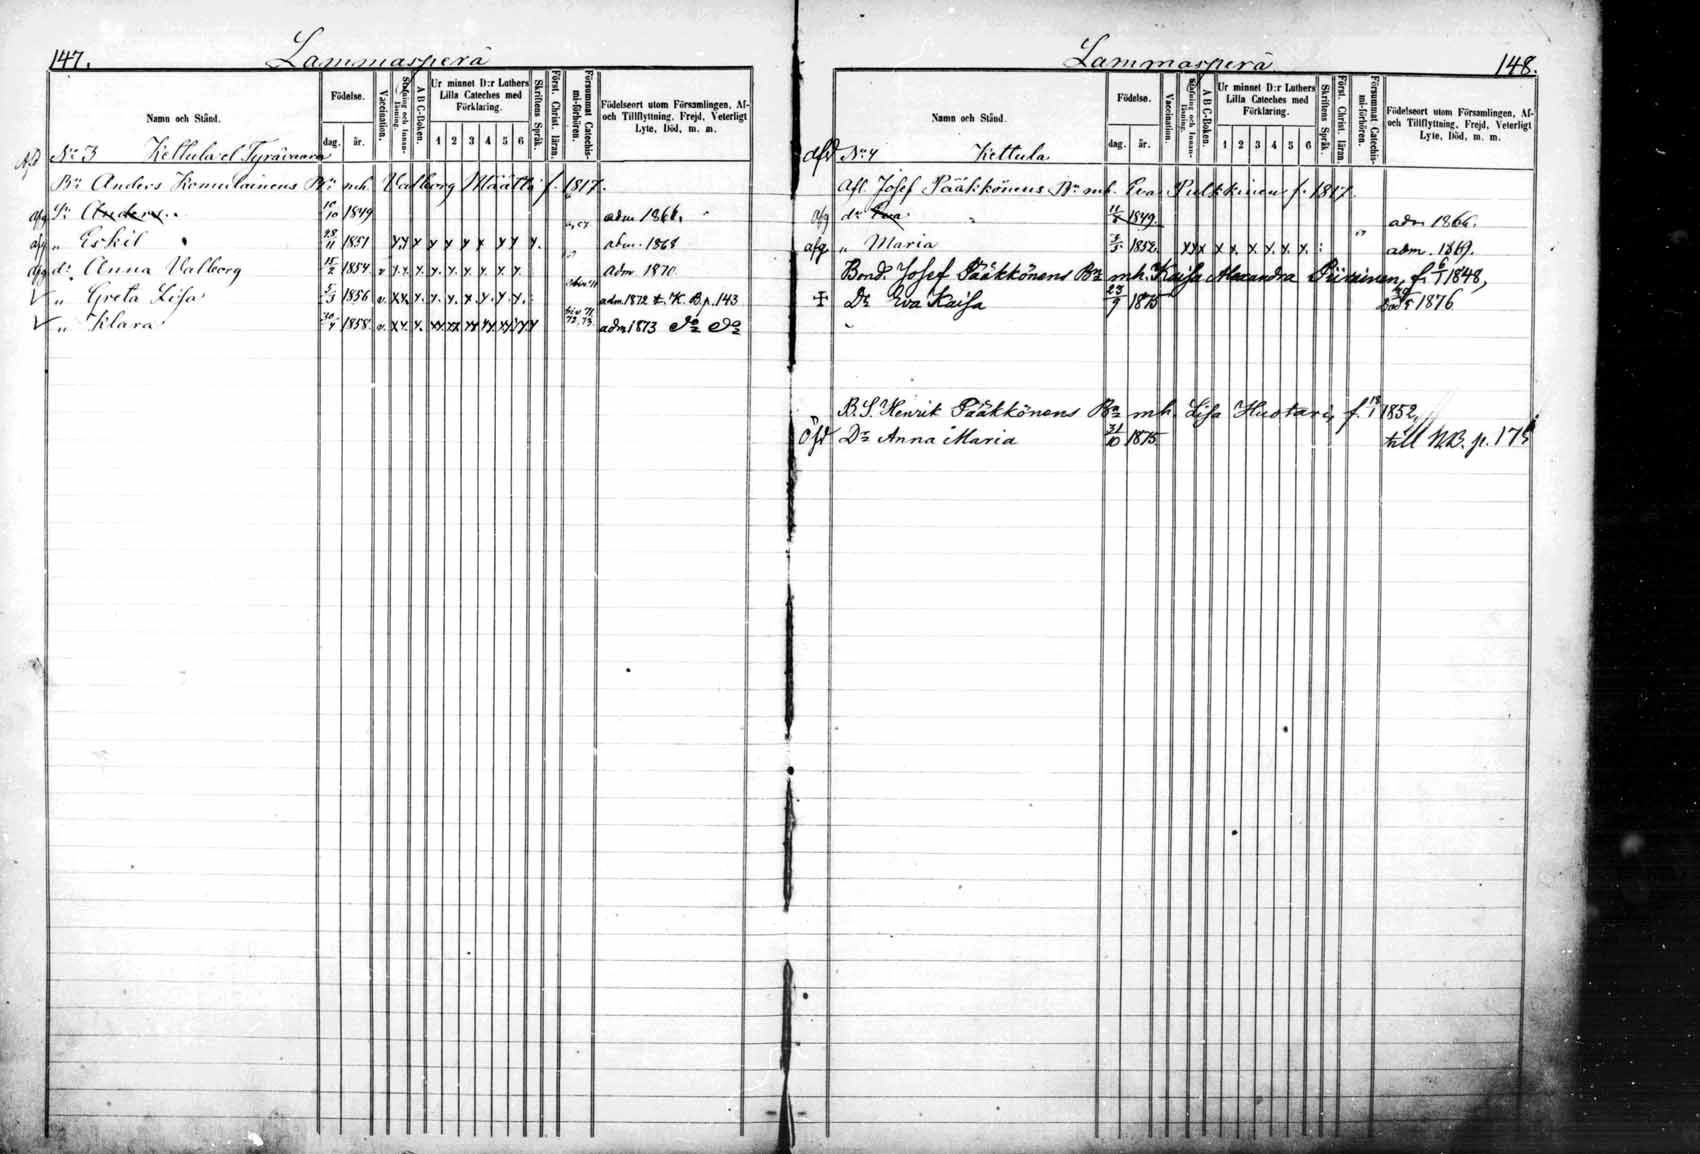 147. Lammasperä
Namn och Stånd.
Födelse.
dag. år.
Vaccination.
Stafning och Innanläsning.
A B C-Boken.
Ur minnet D:r Luthers Lilla Cateches med Förklaring.
1 2 3 4 5 6
Skriftens Språk.
Först. Christ. läran.
Försummat Catechismi-förhören.
Födelseort utom Församlingen, Af- och Tillflyttning, Frejd, Veterligt Lyte, Död, m. m.
Afd No 3 Kettula el. Tyrävaara
Bn Anders Komulainens Bn mh. Valborg Määttä f. 1817.
afg Sn Anders 10/10 1849 adm 1866.
afg " Eskil 28/11 1851 x x x x x x x x x x. adm. 1868
afg dr Anna Valborg 15/2 1854 v x. x. x. x. x. x. x. x. x. adm. 1870.
" Greta Lisa 5/3 1856 v. x x. x. x. x. x. x. x. x. adm. 1872 t. K. B. p. 143
" Klara 30/4 1858 v. x x. x. xx xx xx xx xx xx adm 1873 do do
Lammasperä 148.
Namn och Stånd.
Födelse.
dag. år.
Vaccination.
Stafning och Innanläsning.
A B C-Boken.
Ur minnet D:r Luthers Lilla Cateches med Förklaring.
1 2 3 4 5 6
Skriftens Språk.
Först. Christ. läran.
Försummat Catechismi-förhören.
Födelseort utom Församlingen, Af- och Tillflyttning, Frejd, Veterligt Lyte, Död, m. m.
afd No 4 Kettula
Afl. Josef Pääkkönens Bn mh. Eva Pulkkinen f. 1817.
afg dr Eva 1849. adm 1866.
afg. " Maria 1852. x x x x x. x. x. x. x. adm. 1869.
Bond. Josef Pääkkönens Bn mh. Kaisa Alexandra Piirainen, f. 6/1 1848,
Dr Eva Kaisa 23/9 1875 Död 1876
B. S. Henrik Pääkkönens Bn mh. Lisa Huotari, f. 18/1 1852,
Öfd Dr Anna Maria 31/10 1875 till N.B. p. 175